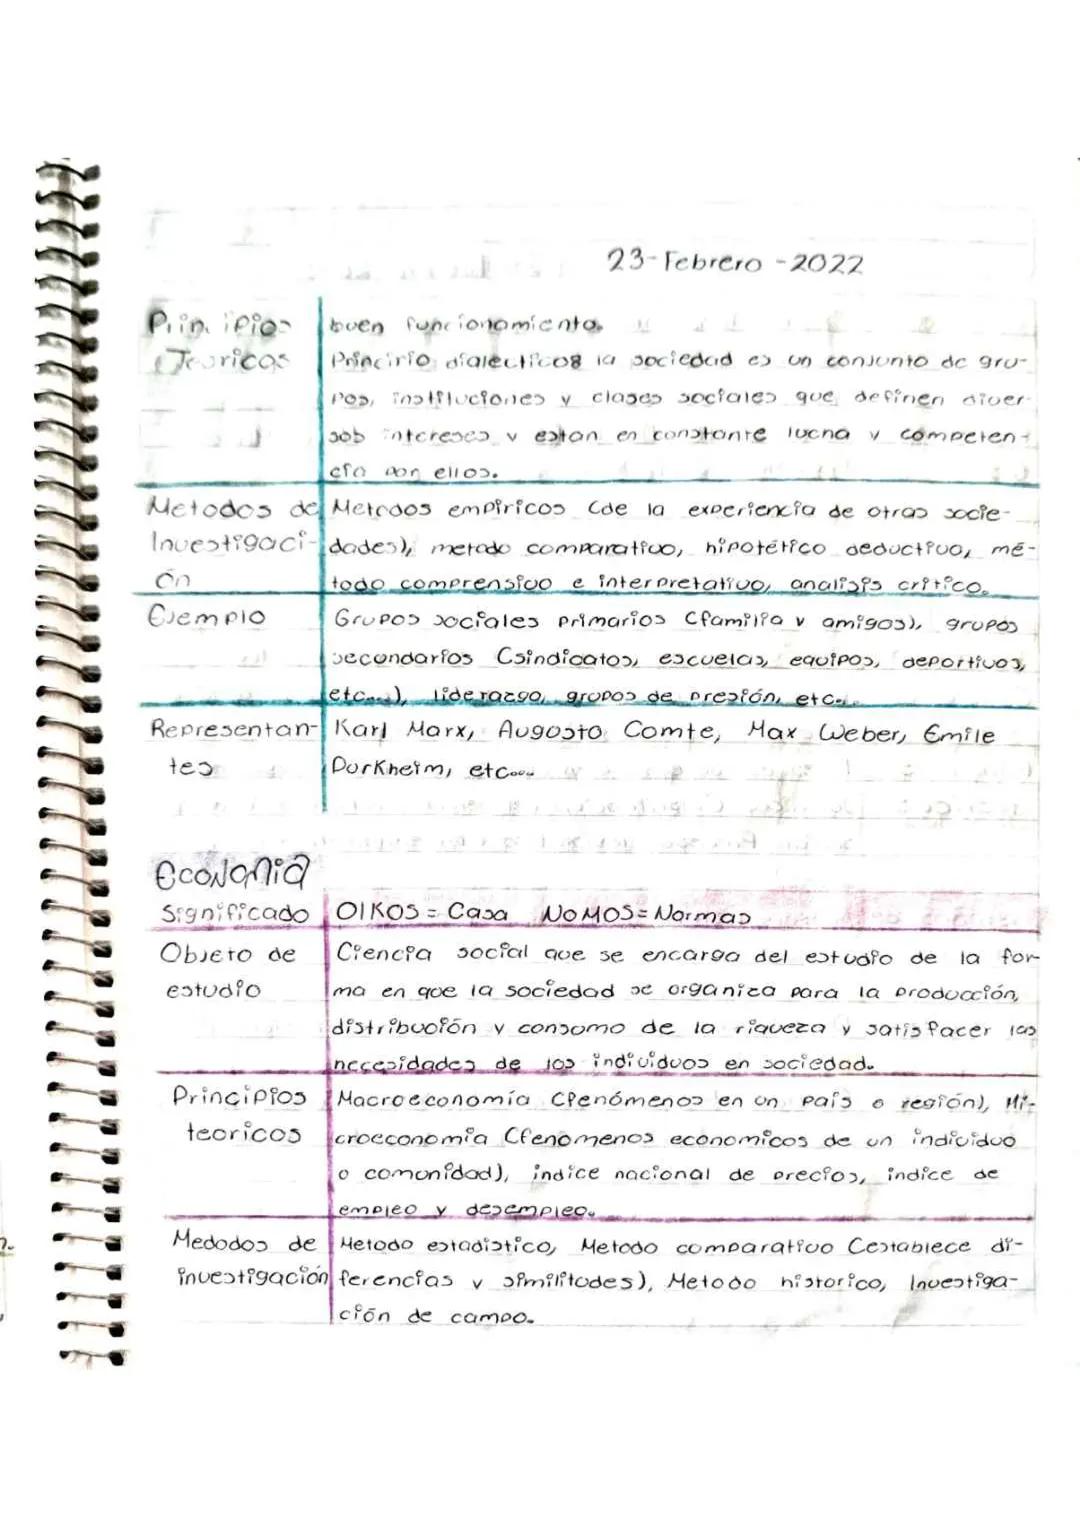 23-Febrero-2022
Principios buen funcionamiento.
Teoricos Principio dialectico: la sociedad es un conjunto de gru-
pos, instituciones y clases sociales que definen diver-
sos intereses y estan en constante lucha y competen-
cia por ellos.
Metodos de Metodos empiricos (de la experiencia de otras socie-
Investigaci- dades), metodo comparativo, hipotético deductivo, mé-
ón todo comprensivo e interpretativo, analisis critico.
Ejemplo Grupos sociales primarios (familia y amigos), grupos
secundarios (sindicatos, escuelas, equipos, deportivos,
etc...), liderazgo, grupos de presión, etc...
Representan- Karl Marx, Augosto Comte, Max Weber, Emile
tes Durkheim, etc....
Economia
Significado OIKOS = Casa NOMOS = Normas
Objeto de Ciencia social que se encarga del estudio de la for-
estudio ma en que la sociedad se organiza para la producción,
distribución y consumo de la riqueza y satisfacer las
necesidades de los individuos en sociedad.
Principios Macroeconomía (fenómenos en un país o región), Mi-
teoricos croeconomia (fenomenos economicos de un individuo
o comunidad), indice nacional de precios, indice de
empleo y desempleo.
Medodos de Metodo estadistico, Metodo comparativo (establece di-
investigación ferencias y similitudes), Metodo historico, Investiga-
ción de campo.